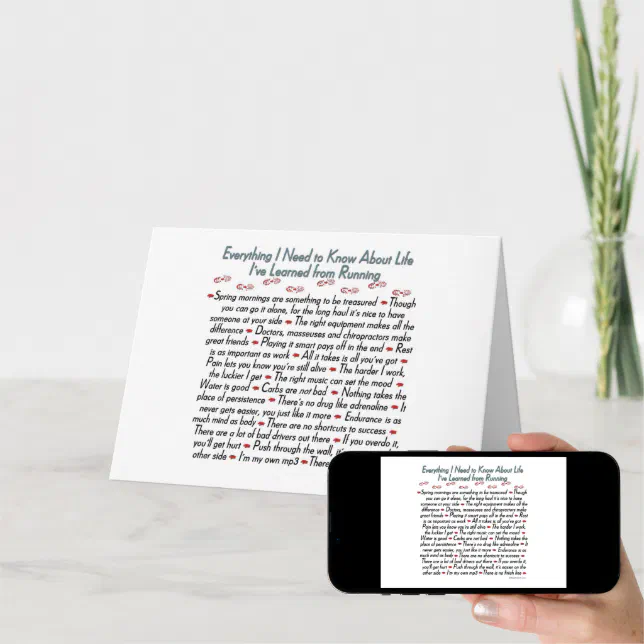 Everything I Need to Know About Life
I've Learned from Running
Spring mornings are something to be treasured Though
you can go it alone, for the long haul it's nice to have
someone at your side The right equipment makes all the
difference Doctors, masseuses and chiropractors make
great friends Playing it smart pays off in the end Rest
is as important as work All it takes is all you've got
Pain lets you know you're still alive The harder I work,
the luckier I get The right music can set the mood
Water is good Carbs are not bad Nothing takes the
place of persistence There's no drug like adrenaline It
never gets easier, you just like it more Endurance is as
much mind as body There are no shortcuts to success
There are a lot of bad drivers out there If you overdo it,
you'll get hurt Push through the wall, it's
other side I'm my own mp3 There
Everything I Need to Know About Life
I've Learned from Running
Spring mornings are something to be treasured Though
you can go it alone, for the long haul it's nice to have
someone at your side The right equipment makes all the
difference Doctors, masseuses and chiropractors make
great friends Playing it smart pays off in the end Rest
is as important as work All it takes is all you've got
Pain lets you know you're still alive The harder I work,
the luckier I get The right music can set the mood
Water is good Carbs are not bad Nothing takes the
place of persistence There's no drug like adrenaline It
never gets easier, you just like it more Endurance is as
much mind as body There are no shortcuts to success
There are a lot of bad drivers out there If you overdo it,
you'll get hurt Push through the wall, it's easier on the
other side I'm my own mp3 There is no finish line